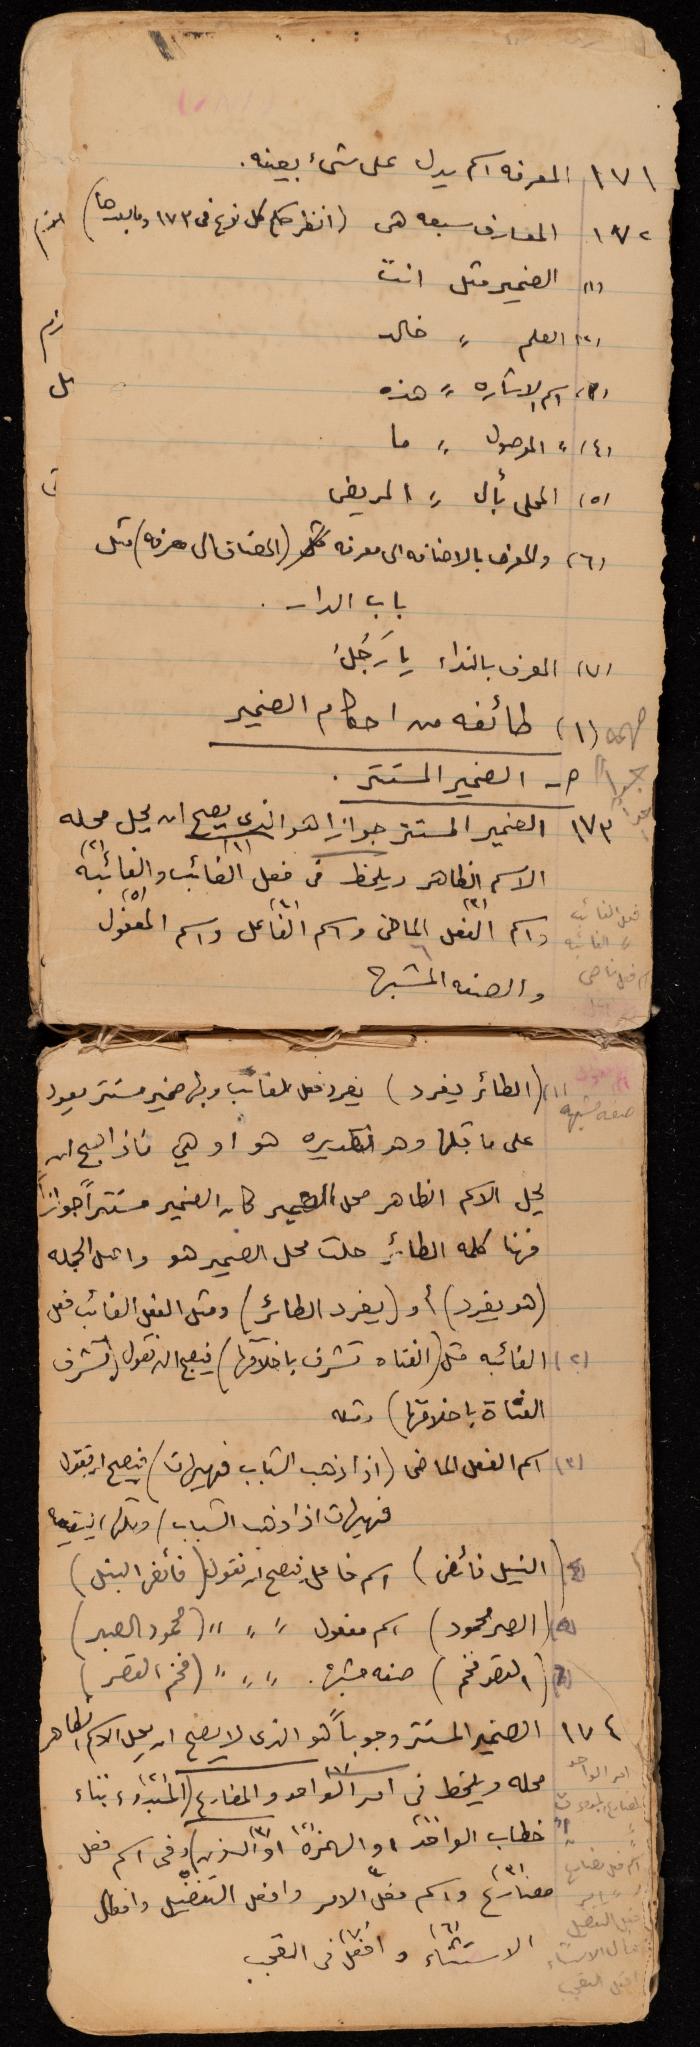 ١٧١ المعرفه اسم يدل على شىء بعينه.
١٧٢ المعارف سبعه هى (انظر حكم كل نوع فى ١٧٣ وما بعدها)
(١) الضمير مثل انت
(٢) العلم 〃 خالد
(٣) اسم الاشاره 〃 هذه
(٤) 〃 الموصول 〃 ما
(٥) المحلى بأل 〃 المريض
(٦) والمعرف بالاضافه الى معرفه (المضاف الى معرفه) مثل
باب الدار.
(٧) المعرف بالنداء يا رَجُلُ
(١) طائفه من احكام الضمير
الضمير المستتر.
١٧٣ الضمير المستتر جوازا هو الذى يصح ان يحل محله
الاسم الظاهر ويلحظ فى فعل (١) الغائب والغائبه (٢)
واسم الفعل (٣) الماضى واسم الفاعل (٤) واسم المفعول (٥)
والصفه المشبهه
فعل الغائب
〃 الغائبه
اسم فعل ماضى
صفه مشبهه
(١) (الطائر يغرد) يغرد فعل للغائب وبه ضمير مستتر يعود
على ما قبلها وهو تقديره هو او هي فاذا صح ان
يحل الاسم الظاهر محل الضمير كان الضمير مستتراً جوازاً
فهنا كلمه الطائر حلت محل الضمير هو واصل الجمله
(هو يغرد) أو (يغرد الطائر) ومثل الفعل الغائب فعل
(٢) الغائبه مثل (الفتاه تشرف باخلاقها) فيصح ان تقول (تشرف
الفتاة باخلاقها) ومثله
(٣) اسم الفعل الماضى (اذا ذهب الشباب فهيهات) فيصح ان تقول
فهيهات اذا ذهب الشباب)
(٤) (النيل فائض) اسم فاعل فيصح ان تقول (فائض النيل)
(٥) (الصبر محمود) اسم مفعول 〃 〃 〃 (محمود الصبر)
(٦) (القصر فخم) صفه مشبهه. 〃 〃 〃 (فخم القصر)
١٧٤ الضمير المستتر وجوباً هو الذى لا يصح ان يحل الاسم الظاهر
محله ويلحظ فى امر الواحد (١) والمضارع (المبدوء بتاء
خطاب الواحد او الهمزة او النون) وفى اسم فعل
مضارع (٣) واسم فعل الامر وافعل التفضيل وافعال
الاستثناء (٦) و افعل (٧) فى التعجب
امر الواحد
اسم فعل مضارع
افعل التفضيل
افعال الاستثناء
افعل التعجب